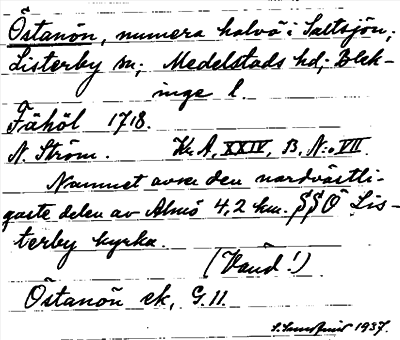 Östanön, numera halvö i Saltsjön;
Listerby sn; Medelstads hd; Blek-
inge l.
Fähöl 1718.
N. Ström. Kr. A, XXIV, B, N:o VII
Namnet avser den nordvästli-
gaste delen av Almö 4,2 km. SSÖ Lis-
terby kyrka.
(Vänd!)
Östanön ek, G.11.
1937.